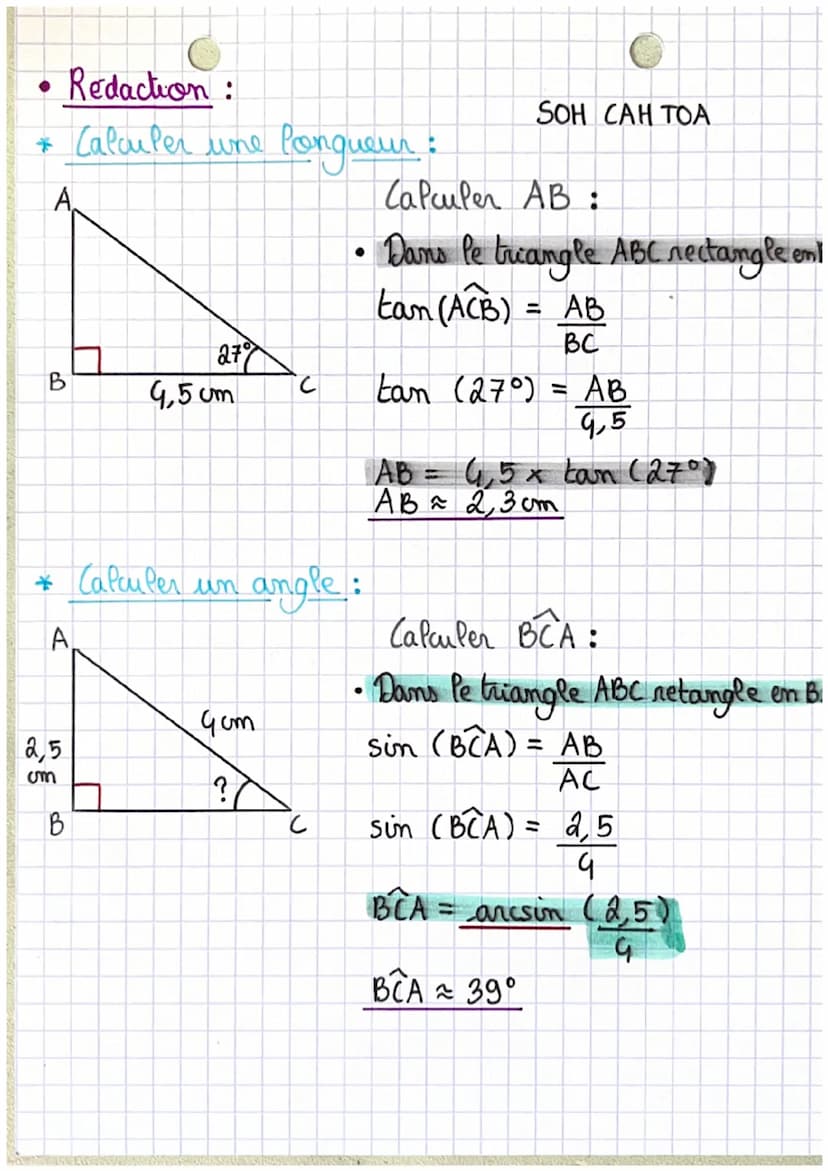 • Rédaction :
SOH CAH TOA
* Calculer une longueur :
A
B
C
27°
4,5 cm
Calculer AB :
• Dans le triangle ABC rectangle en
tan (ACB) = AB
BC
tan (27°) = AB
4,5
AB = 4,5 x tan (27°)
AB ≈ 2,3 cm
* Calculer un angle :
A
4 cm
2,5
cm
?
B
C
Calculer BĈA :
• Dans le triangle ABC retangle en B.
sin (BĈA) = AB
AC
sin (BĈA) = 2,5
4
BĈA = arcsin (2,5)
4
BĈA ≈ 39°